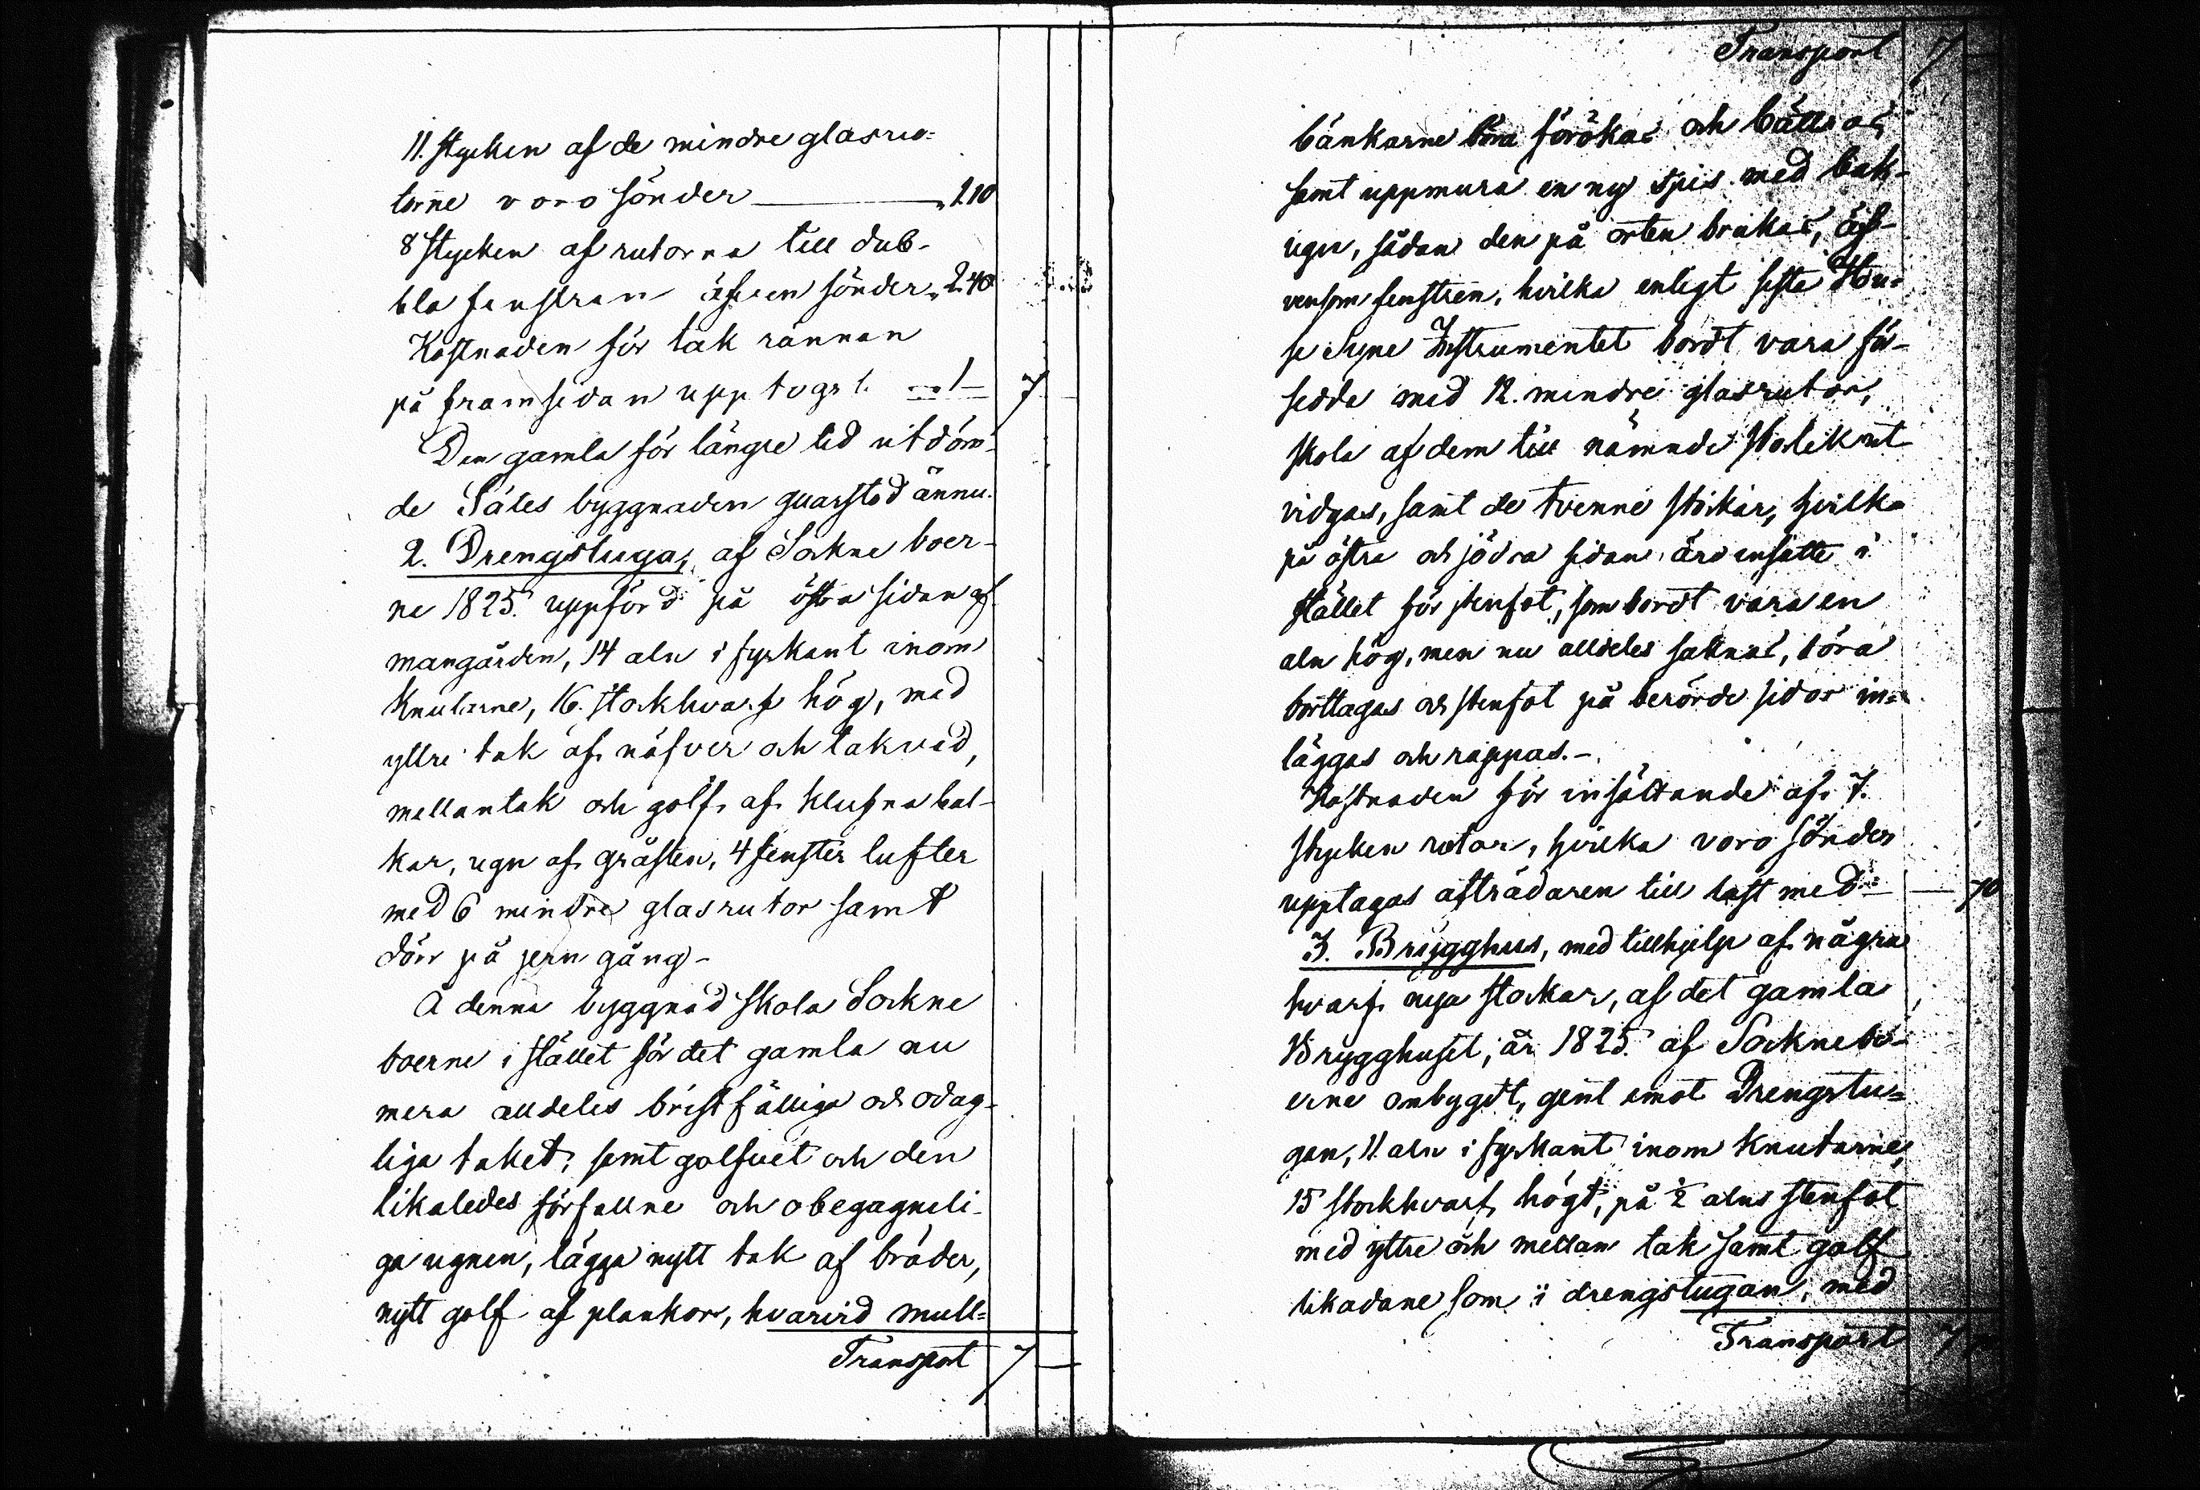 11. stycken af de mindre glasru=
torne voro sönder — „ 1.10
8 stycken af rutorna till dub-
bla fenstren äfven sönder „ 2.40
Kostnaden för tak rännan
på framsidan upptogs t. — 1 — 7 —
Den gamla för längre tid utdöm-
de Sätes byggnaden quarstod ännu.
2. Drengstuga, af Sockne boer-
ne 1825. uppförd på östra sidan af
mangården, 14 aln i fyrkant inom
Knutarne, 16. stockhvarf hög, med
yttre tak af näfver och takved,
mellantak och golf af klufna bal-
kar, ugn af gråsten, 4 fenster lufter
med 6 mindre glasrutor samt
dörr på jern gång -
Å denna byggnad skola Sockne
boerne i stället för det gamla nu
mera alldeles bristfälliga och odug-
liga taket, samt golfvet och den
likaledes förfallne och obegagneli-
ga ugnen, lägga nytt tak af bräder,
nytt golf af plankor, hvarvid mull=
Transport 7 —
Transport 7 —
bänkarne böra förökas och bättras,
samt uppmura en ny spis med bak-
ugn, sådan den på orten brukas, äf-
vensom fenstren, hvilka enligt sista Hu=
se Syne Instrumentet bordt vara för-
sedda med 12. mindre glasrutor,
skola af dem till nämnde storlek ut-
vidgas, samt de tvenne stockar, hvilka
på östra och södra sidan äro insatte i
stället för stenfot, som bordt vara en
aln hög, men nu alldeles saknas, böra
borttagas och stenfot på berörde sidor in=
läggas och rappas. -
Kostnaden för insättande af 7.
stycken rutor, hvilka voro sönder
upptagas afträdaren till last med — 70
3. Brygghus, med tillhjelp af några
hvarf nya stockar, af det gamla
Brygghuset, år 1825. af Sockne bo-
erne ombygdt, gent emot Drengstu=
gan, 11 aln i fyrkant inom knutarne,
15 stockhvarf högt, på ½ alns stenfot
med yttre och mellan tak samt golf
likadane som i drengstugan, med
Transport 7